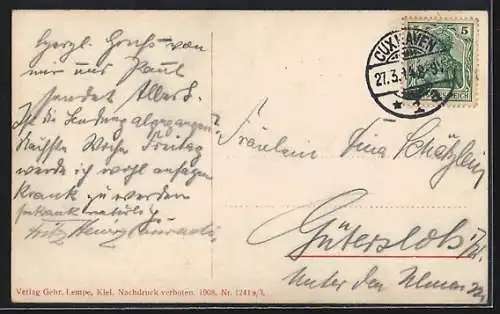 Herzl. Gruß von
mir und Paul
sendet
Ist die Sendung abgegangen?
Nächste Woche Freitag
werde ich wohl anfangen
krank zu werden
natürlich
Fritz Henry
Fräulein Tina Schätzlein
Gütersloh i/W.
Unter den Ulmen
CUXHAVEN
27.3.1
* 2 a
5
REICH
Verlag Gebr. Lempe, Kiel. Nachdruck verboten. 1908. Nr. 1241 a/3.